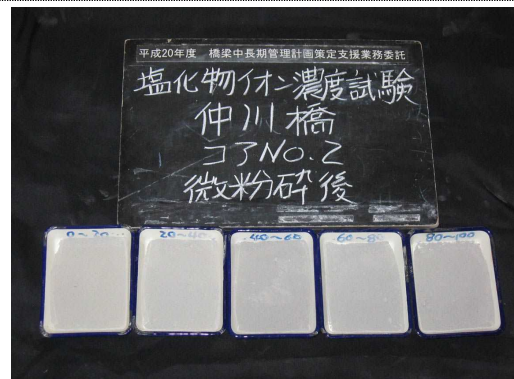 平成20年度 橋梁中長期管理計画策定支援業務委託
塩化物イオン濃度試験
仲川橋
コアNO.2
微粉砕後
0~20 20~40 40~60 60~80 80~100